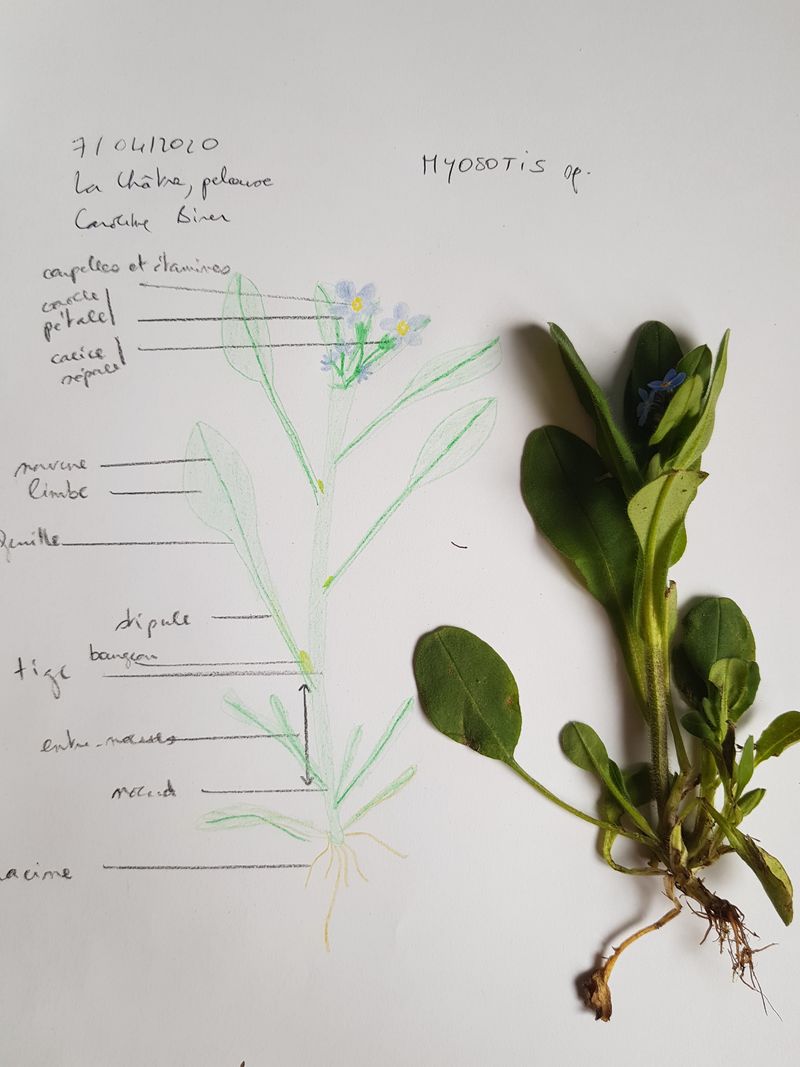 7/04/2020
La Châtre, pelouse
Caroline
MYOSOTIS sp.
coupelles et étamines
corolle
pétale
calice
sépale
nervure
limbe
feuille
stipule
bourgeon
tige
entre-nœuds
nœud
racine